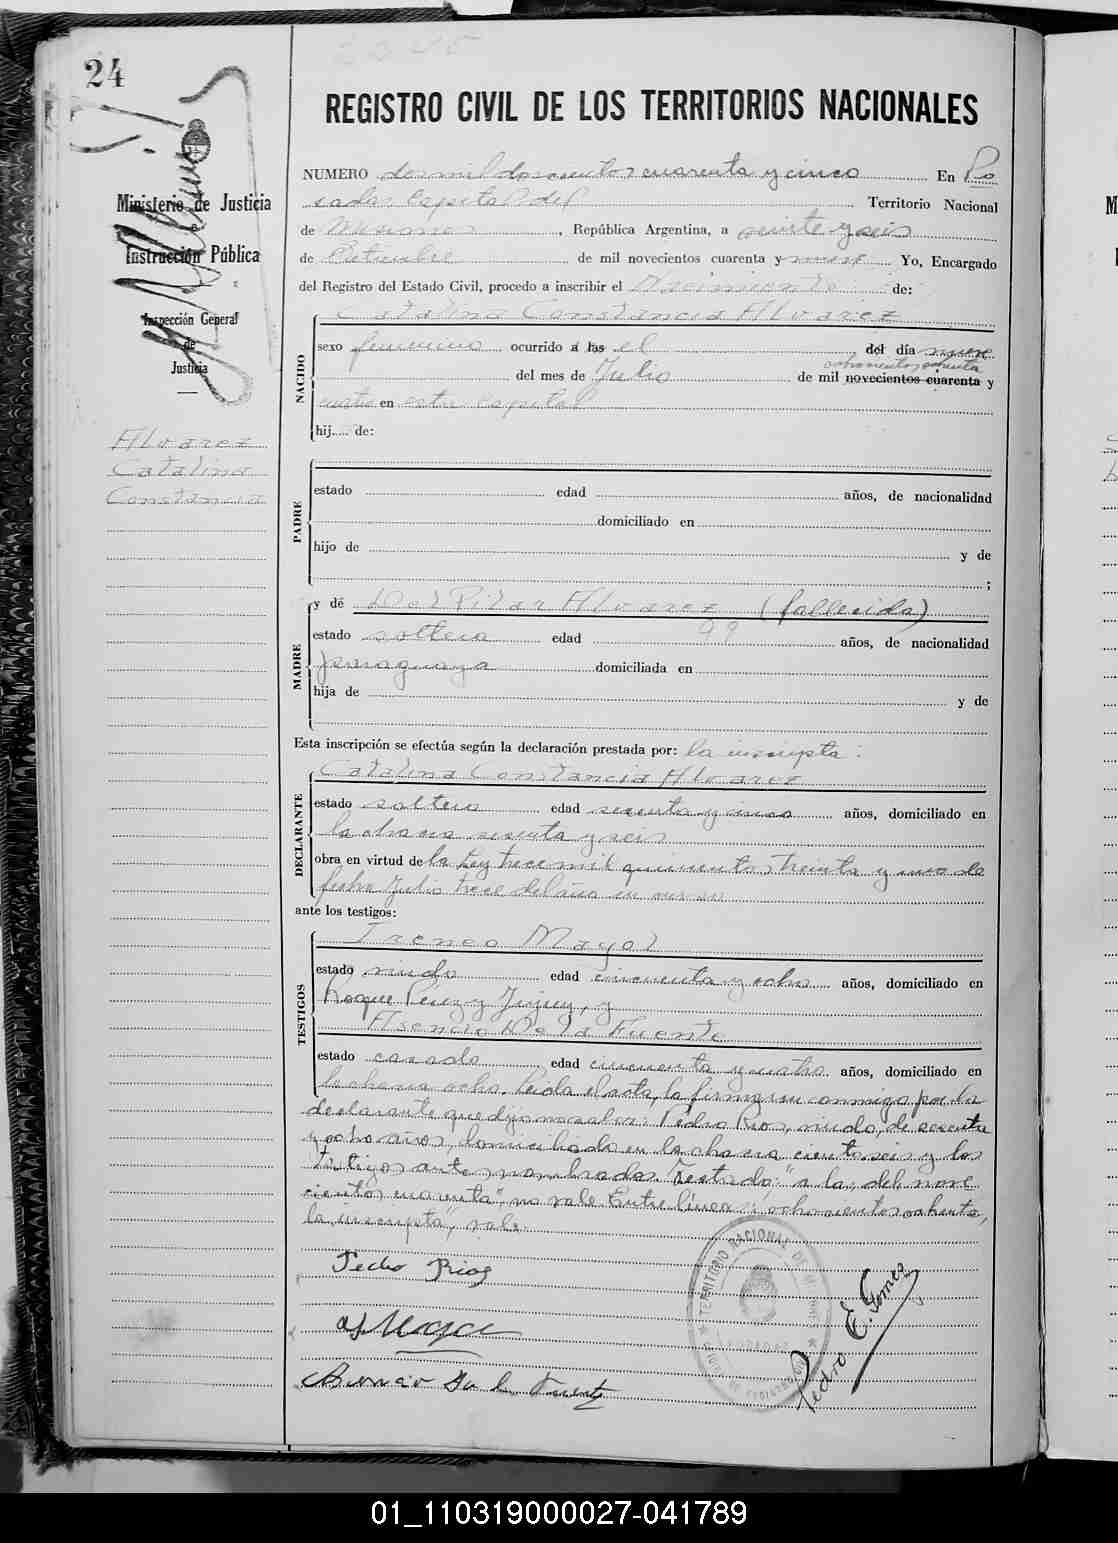 24
REGISTRO CIVIL DE LOS TERRITORIOS NACIONALES
Ministerio de Justicia
e
Instrucción Pública
Inspección General
de
Justicia
Alvarez
Catalina
Constancia
NUMERO dos mil doscientos cuarenta y cinco En Po
sadas Capital del Territorio Nacional
de Misiones, República Argentina, a veinte y seis
de Octubre de mil novecientos cuarenta y nueve Yo, Encargado
del Registro del Estado Civil, procedo a inscribir el Nacimiento de:
Catalina Constancia Alvarez
NACIDO
sexo femenino ocurrido a las el del día nueve
ochocientos ochenta
del mes de Julio de mil novecientos cuarenta y
cuatro en esta Capital
hij..... de:
PADRE
estado edad años, de nacionalidad
domiciliado en
hijo de y de
;
MADRE
y de Del Pilar Alvarez (fallecida)
estado soltera edad 99 años, de nacionalidad
paraguaya domiciliada en
hija de y de
Esta inscripción se efectúa según la declaración prestada por: la inscripta:
DECLARANTE
Catalina Constancia Alvarez
estado soltera edad sesenta y cinco años, domiciliado en
la chacra sesenta y seis
obra en virtud de la Ley trece mil quinientos treinta y uno de
fecha Julio trece del año en curso
ante los testigos:
TESTIGOS
Ireneo Mayol
estado viudo edad cincuenta y ocho años, domiciliado en
Roque Perez y Jujuy, y
Asencio De la Fuente
estado casado edad cincuenta y cuatro años, domiciliado en
la chacra ocho. Leida el acta, la firman conmigo por la
declarante que dijo no saber Pedro Rios, viudo, de sesenta
y ocho años, domiciliado en la chacra ciento seis y los
testigos antes nombrados. Testado: "a las, del, nove
cientos cuarenta", no vale. Entre línea: "ochocientos ochenta,
la inscripta", vale.
Pedro Rios
Asencio De la Fuente
Pedro E. Gomez
TERRITORIO NACIONAL DE MISIONES
01_110319000027-041789